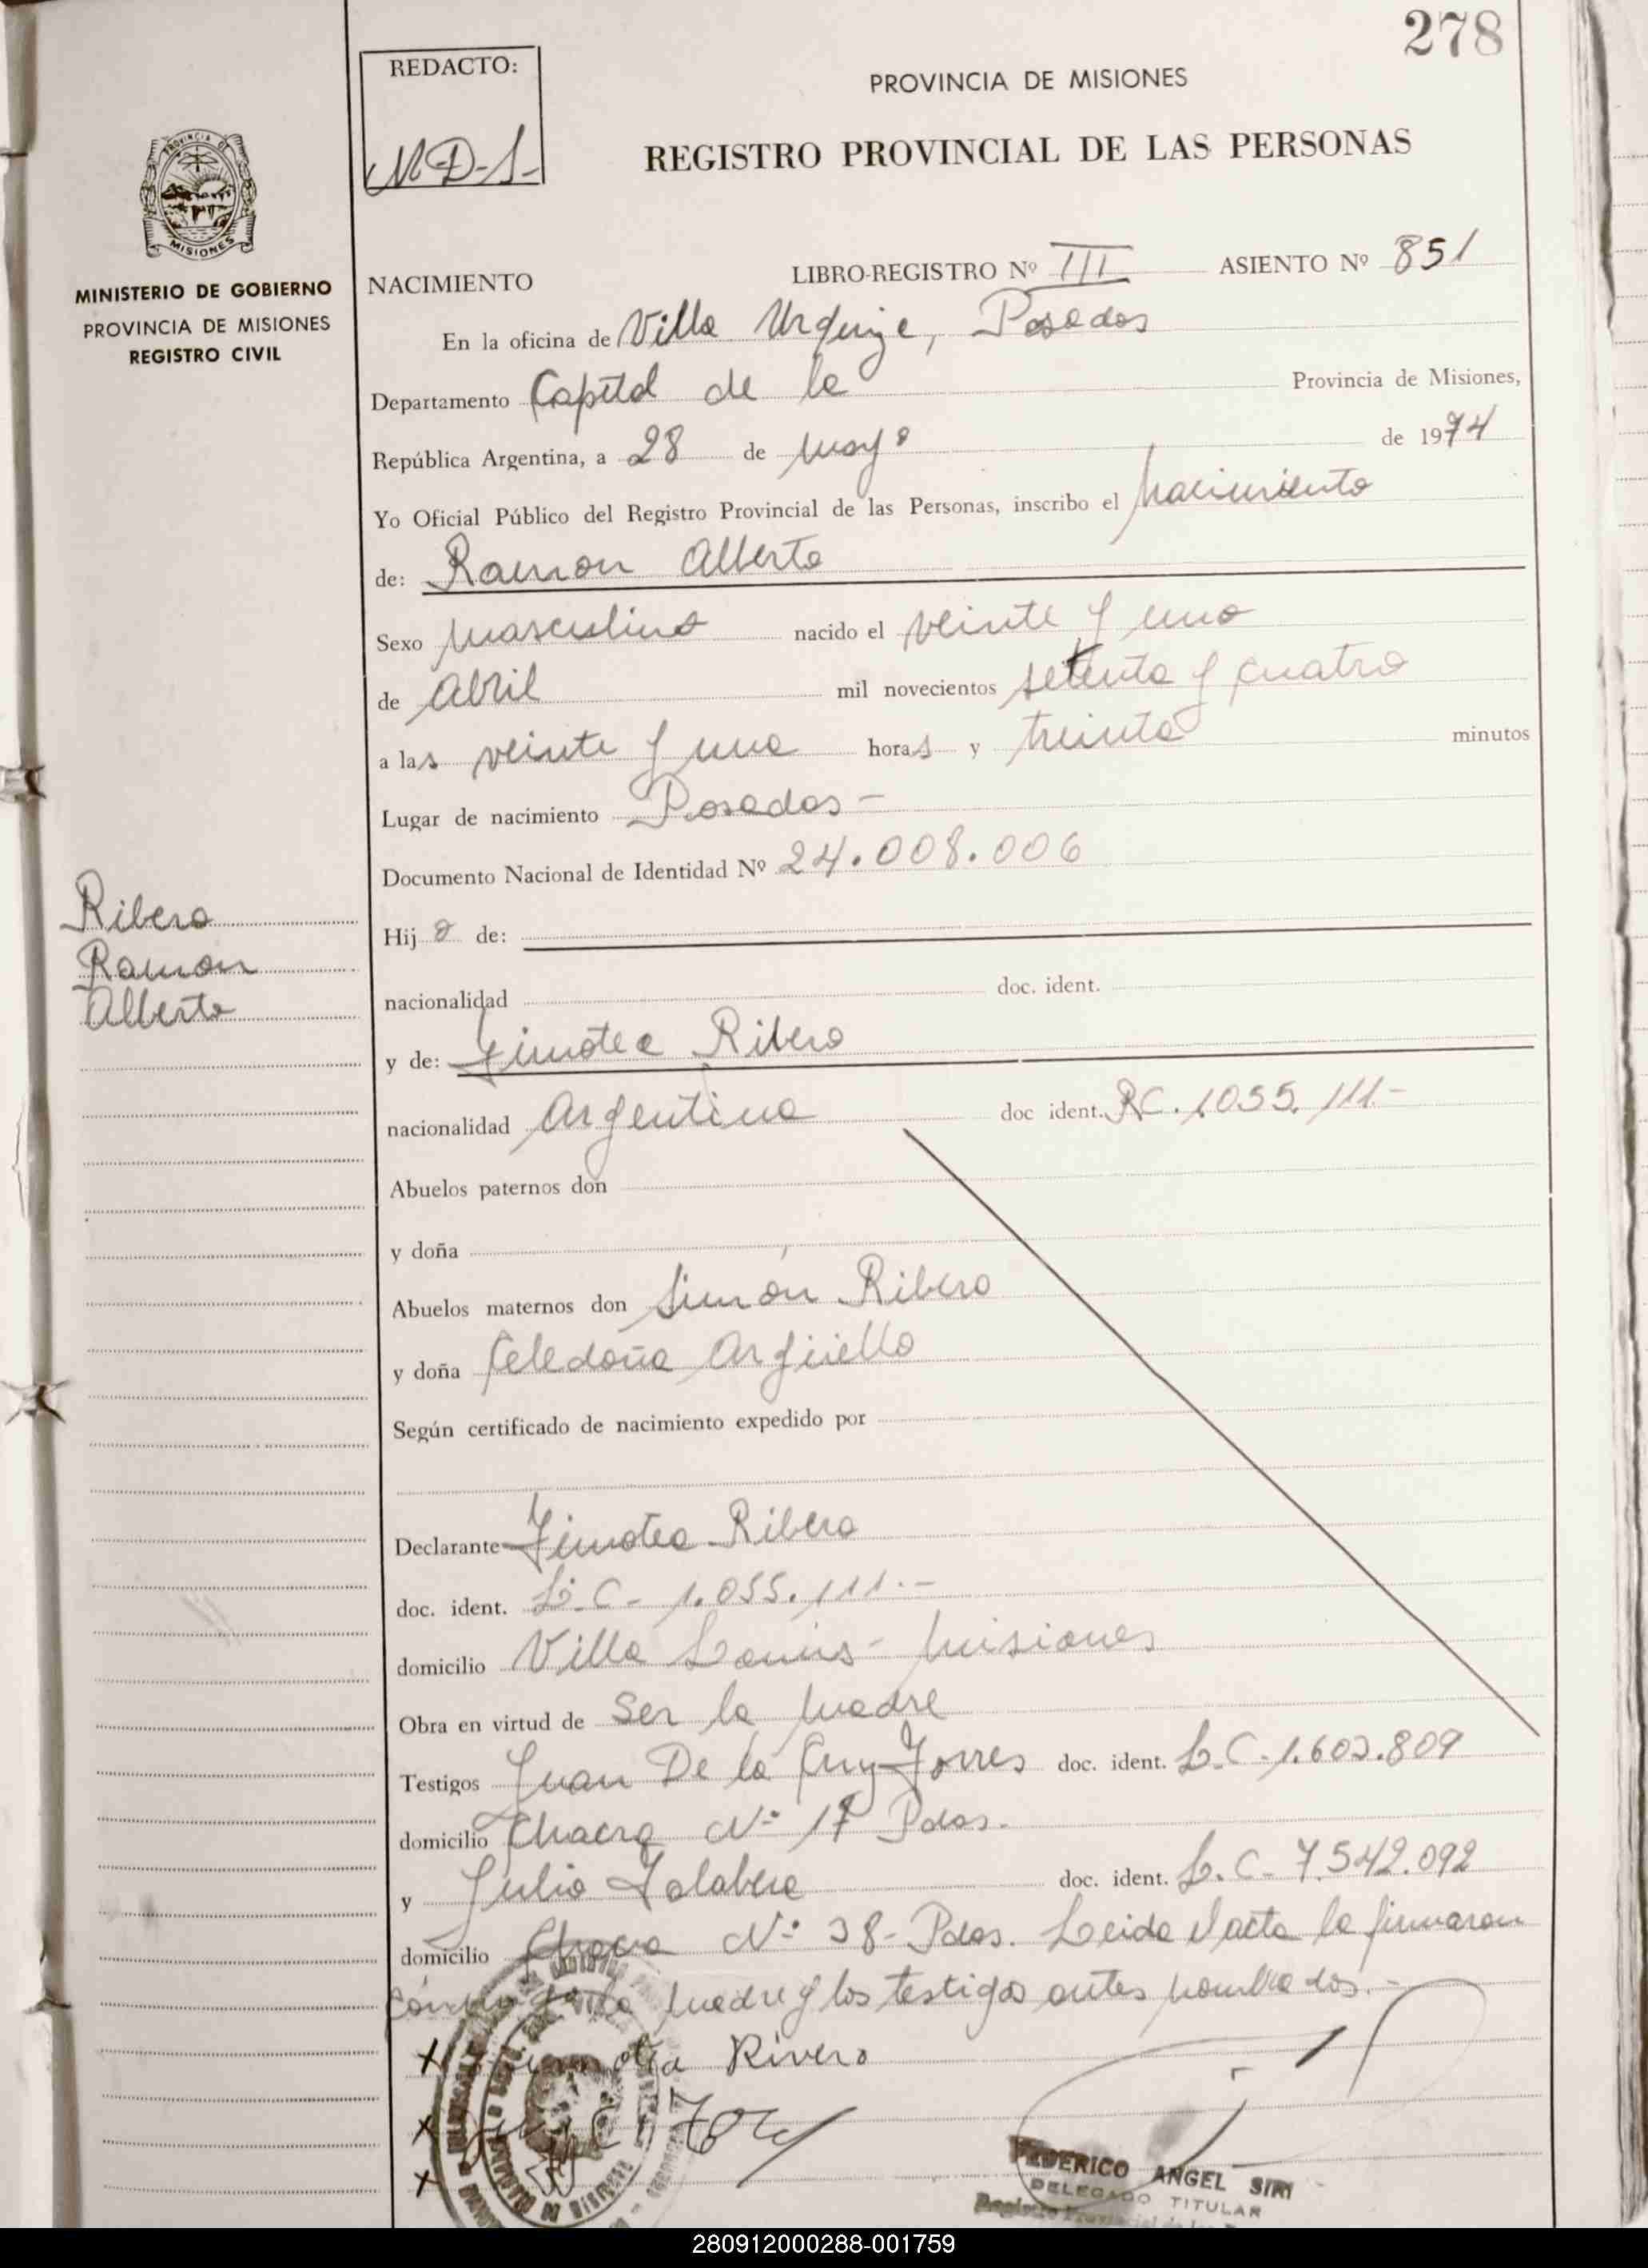 278
REDACTO:
M-D-S-
PROVINCIA DE MISIONES
REGISTRO PROVINCIAL DE LAS PERSONAS
MISIONES
MINISTERIO DE GOBIERNO
PROVINCIA DE MISIONES
REGISTRO CIVIL
NACIMIENTO LIBRO-REGISTRO Nº III ASIENTO Nº 851
En la oficina de Villa Urquiza, Posadas
Departamento Capital de la Provincia de Misiones,
República Argentina, a 28 de mayo de 1974
Yo Oficial Público del Registro Provincial de las Personas, inscribo el Nacimiento
de: Ramon Alberto
Sexo Masculino nacido el veinte y uno
de Abril mil novecientos setenta y cuatro
a las veinte y una horas y treinta minutos
Lugar de nacimiento Posadas -
Documento Nacional de Identidad Nº 24.008.006
Ribero
Ramon
Alberto
Hijo de:
nacionalidad doc. ident.
y de: Timotea Ribero
nacionalidad Argentina doc ident. RC. 1055.111.-
Abuelos paternos don
y doña
Abuelos maternos don Simón Ribero
y doña Celedoña Argüello
Según certificado de nacimiento expedido por
Declarante Timotea Ribero
doc. ident. L.C- 1.055.111.-
domicilio Villa Lanús - Misiones
Obra en virtud de Ser la madre
Testigos Juan De la Cruz Torres doc. ident. L.C-1.603.809
domicilio Chacra Nº 17 Pdas.
y Julio Talabera doc. ident. L.C- 7.542.092
domicilio Chacra Nº 38- Pdas. Leida el acta la firmaron
conmigo la madre y los testigos antes nombrados.-
x Timotea Rivero
x
x
FEDERICO ANGEL SIRI
DELEGADO TITULAR
280912000288-001759